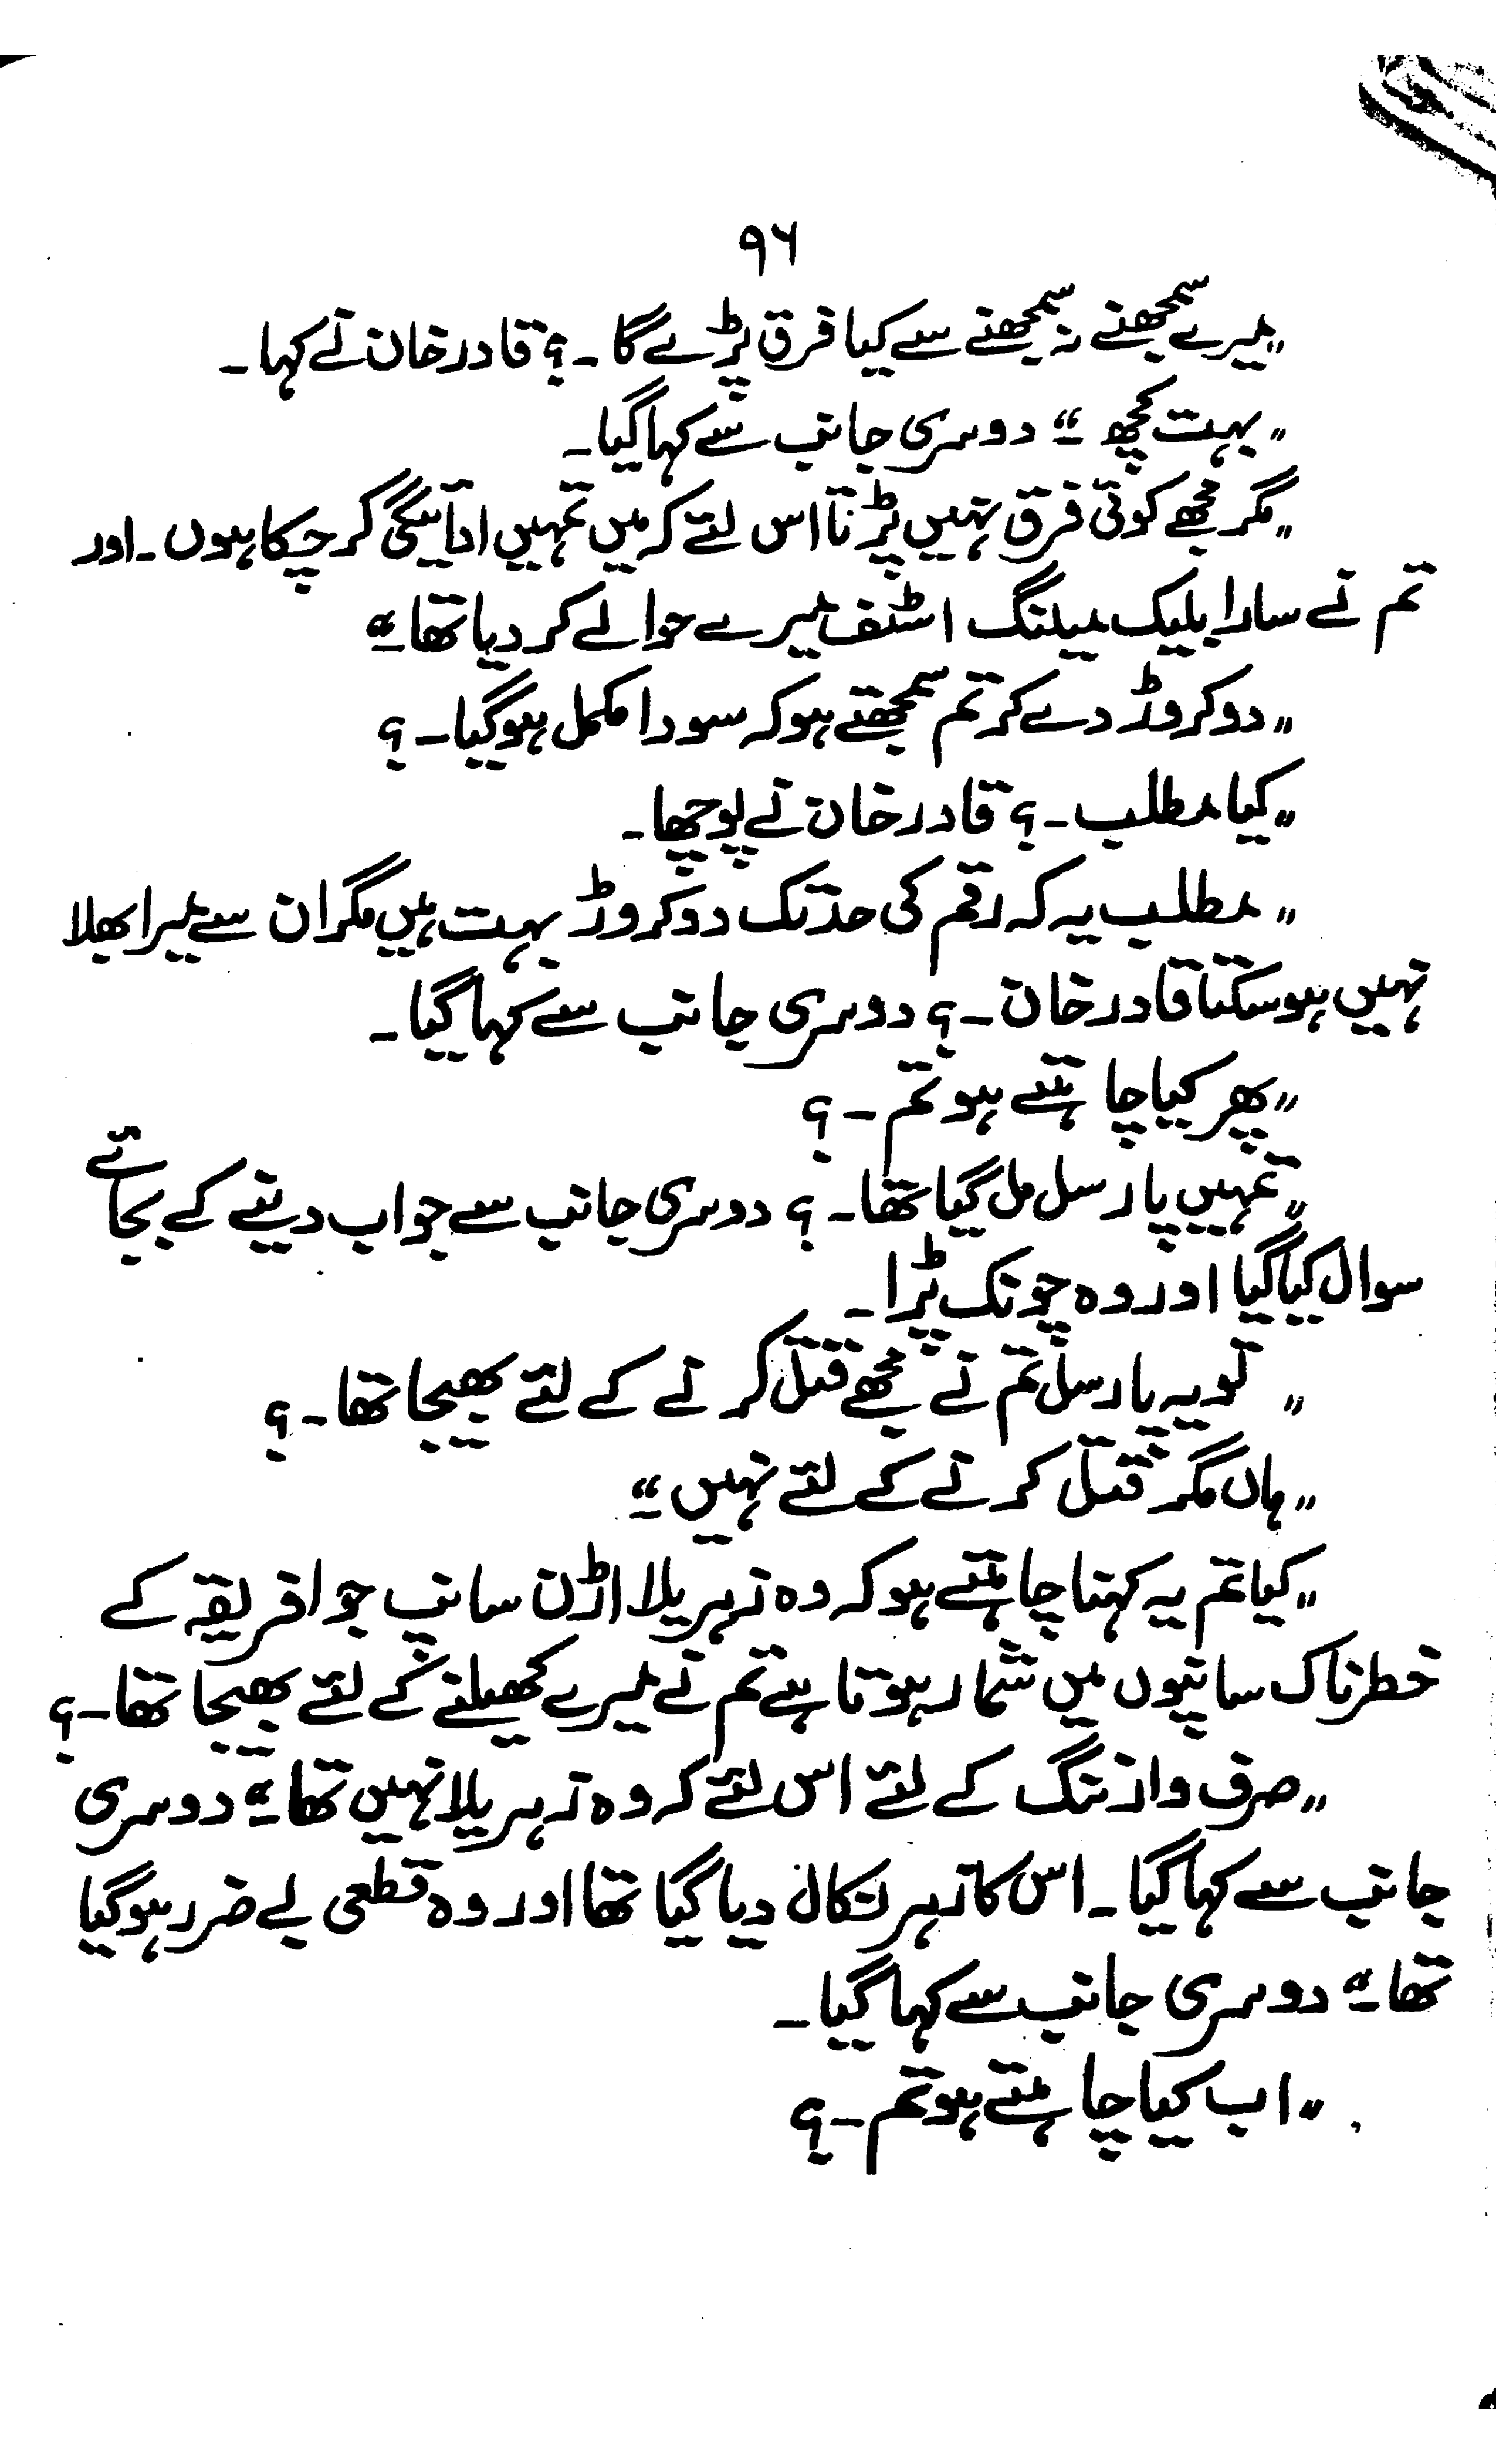 ۹۶
"میرے سمجھنے نہ سمجھنے سے کیا فرق پڑے گا۔؟ قادر خان نے کہا۔
"بہت کچھ۔" دوسری جانب سے کہا گیا۔
"مگر مجھے کوئی فرق نہیں پڑتا اس لئے کہ میں تمہیں ادائیگی کر چکا ہوں۔ اور
تم نے سارا بلیک میلنگ اسٹف میرے حوالے کر دیا تھا۔"
"دو کروڑ دے کر تم سمجھتے ہو کہ سودا مکمل ہو گیا۔؟
"کیا مطلب۔؟ قادر خان نے پوچھا۔
"مطلب یہ کہ رقم کی حد تک دو کروڑ بہت ہیں مگر ان سے میرا بھلا
نہیں ہو سکتا قادر خان۔؟ دوسری جانب سے کہا گیا۔
"پھر کیا چاہتے ہو تم۔؟
"تمہیں پارسل مل گیا تھا۔؟ دوسری جانب سے جواب دینے کے بجائے
سوال کیا گیا اور وہ چونک پڑا۔
"تو یہ پارسل تم نے مجھے قتل کرنے کے لئے بھیجا تھا۔؟
"ہاں مگر قتل کرنے کے لئے نہیں۔"
"کیا تم یہ کہنا چاہتے ہو کہ وہ زہریلا اڑن سانپ جو افریقہ کے
خطرناک سانپوں میں شمار ہوتا ہے تم نے میرے کھیلنے کے لئے بھیجا تھا۔؟
"صرف وارننگ کے لئے اس لئے کہ وہ زہریلا نہیں تھا۔" دوسری
جانب سے کہا گیا۔ اس کا زہر نکال دیا گیا تھا اور وہ قطعی بے ضرر ہو گیا
تھا۔" دوسری جانب سے کہا گیا۔
"اب کیا چاہتے ہو تم۔؟